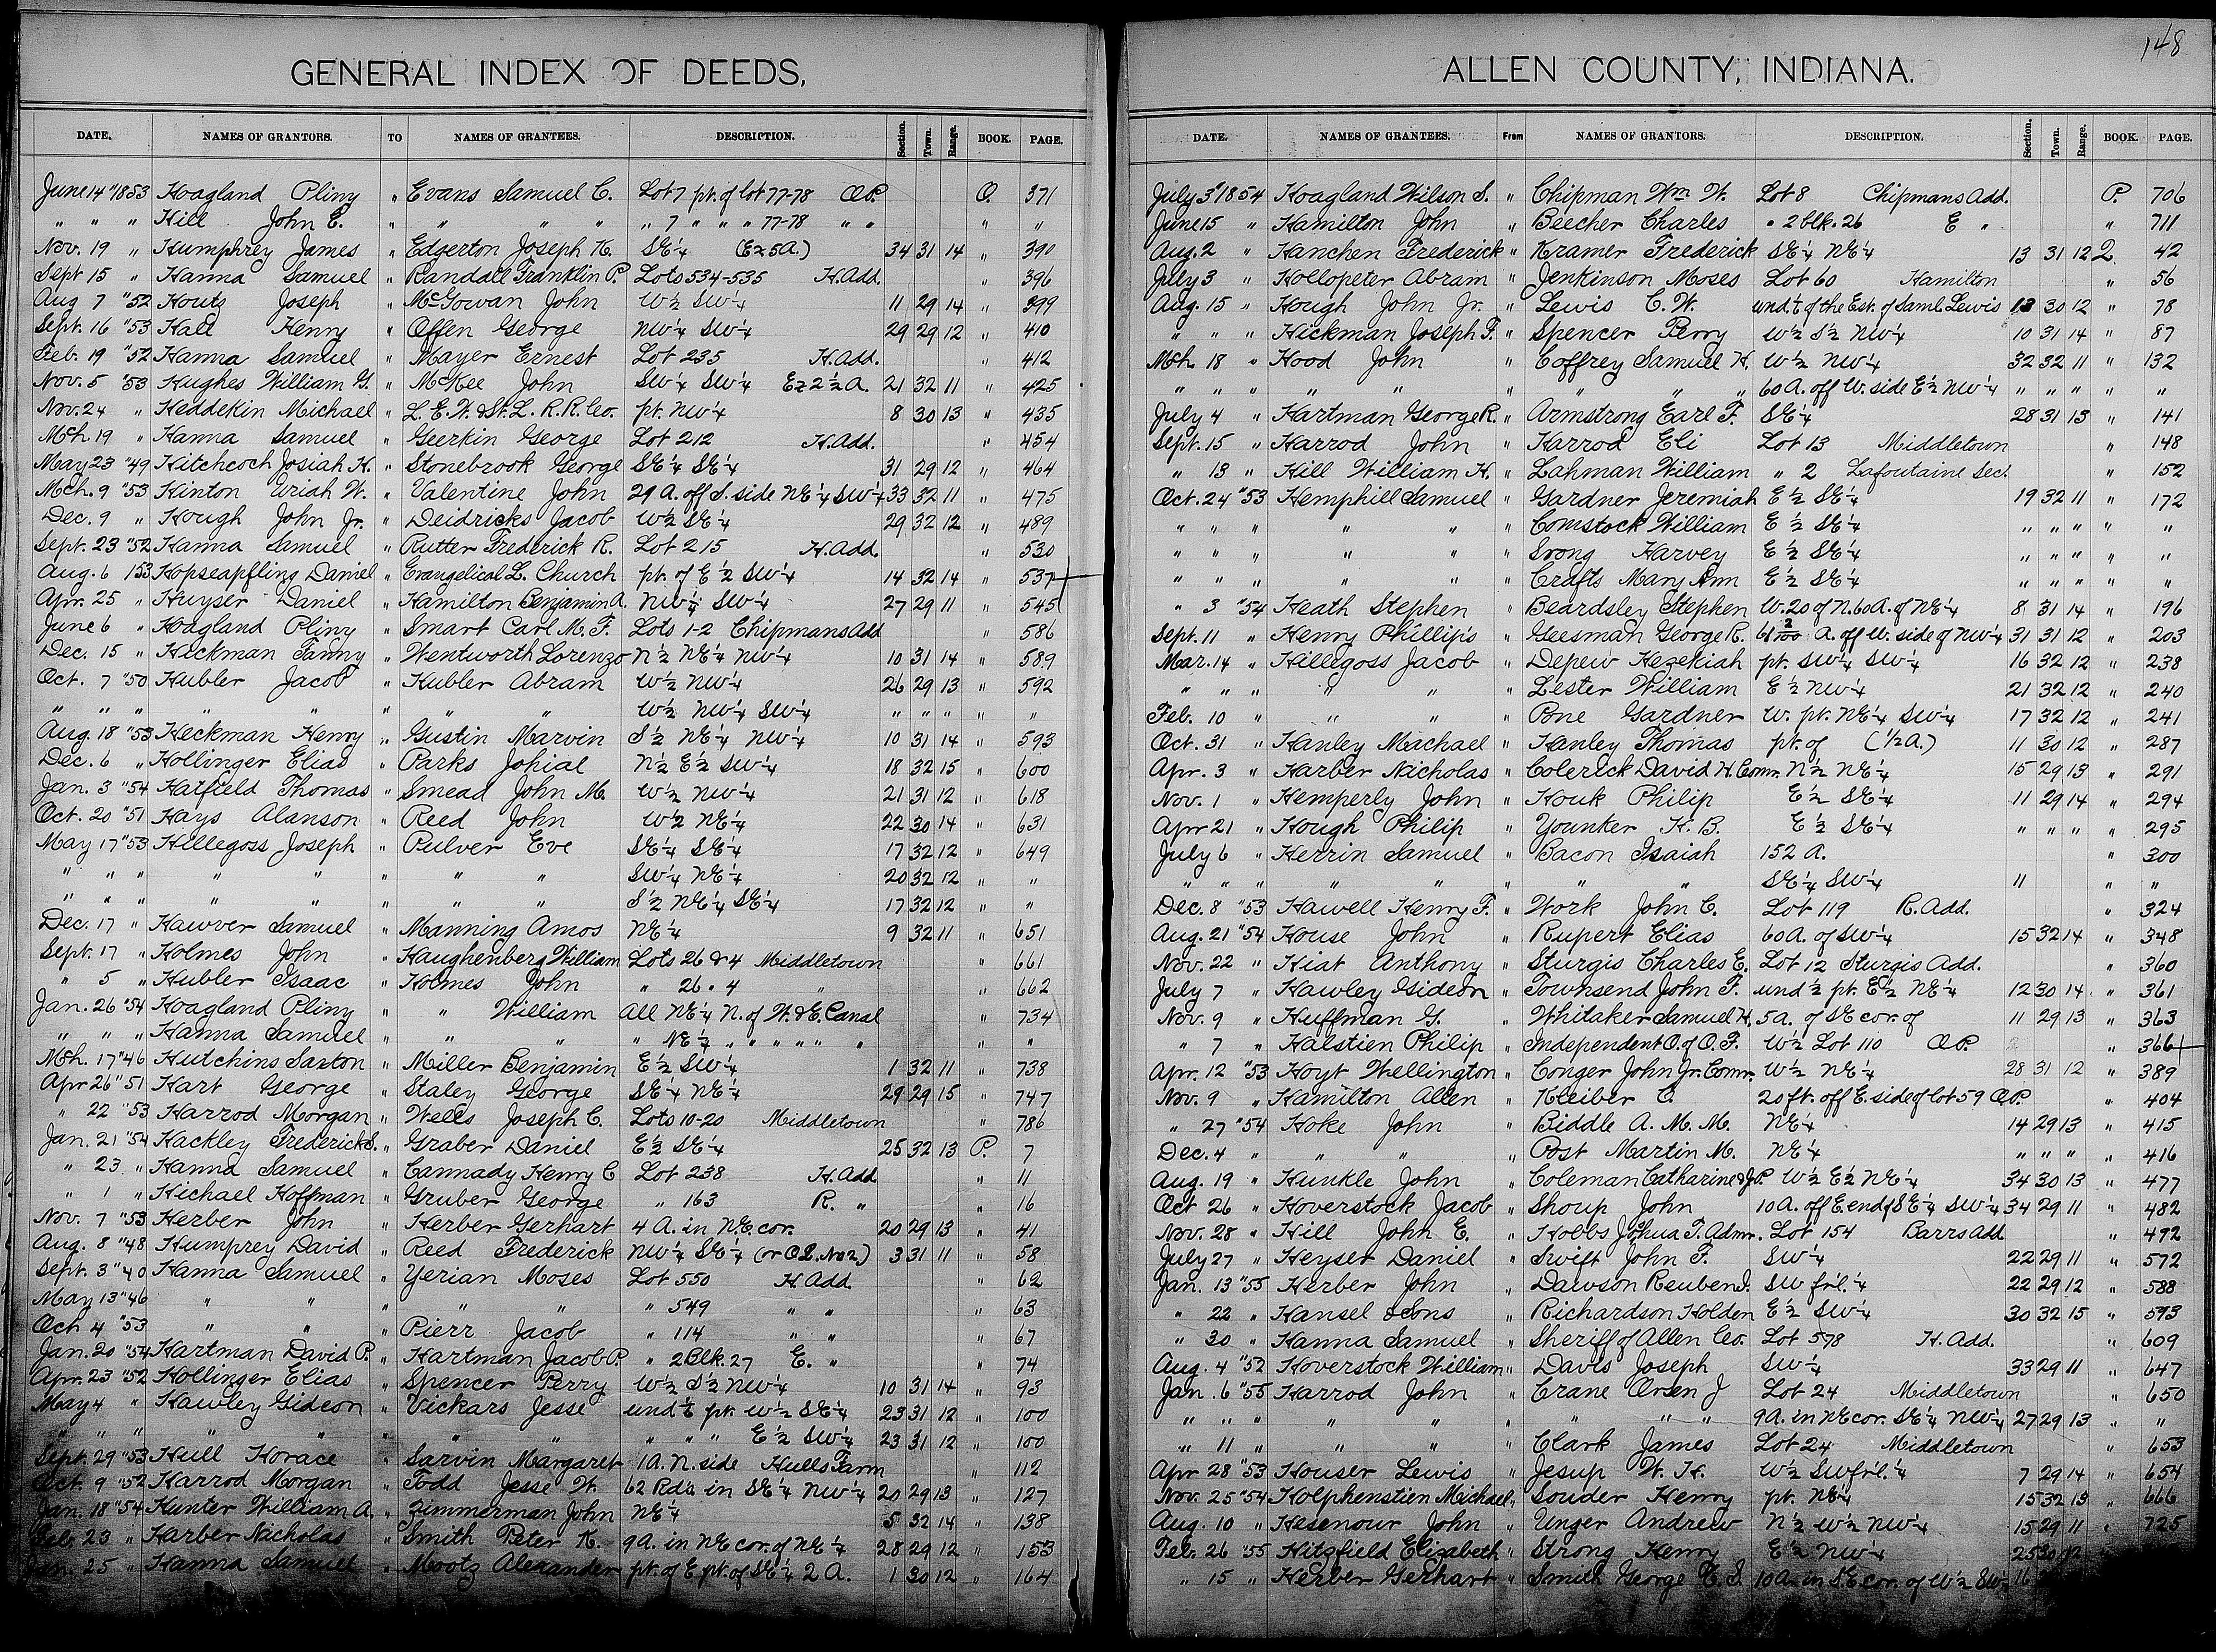 148
GENERAL INDEX OF DEEDS,
DATE. NAMES OF GRANTORS. TO NAMES OF GRANTEES. DESCRIPTION. Section. Town. Range. BOOK. PAGE.
June 14 "1853 Hoagland Pliny " Evans Samuel C. Lot 7 pt. of lot 77-78 O.P. O. 371
" " " Hill John E. " " " " " 7 " " " 77-78 " " " "
Nov. 19 " Humphrey James " Edgerton Joseph K. SE¼ (Ex 5A.) 34 31 14 " 390
Sept 15 " Hanna Samuel " Randall Franklin P. Lots 534-535 H.Add. " 396
Aug 7 "52 Houts Joseph " McGowan John W½ SW¼ 11 29 14 " 399
Sept. 16 "53 Hall Henry " Offen George NW¼ SW¼ 29 29 12 " 410
Feb. 19 "52 Hanna Samuel " Mayer Ernest Lot 235 H.Add. " 412
Nov. 5 "53 Hughes William G. " McKee John SW¼ SW¼ Ex 2½ A. 21 32 11 " 425
Nov. 24 " Heddekin Michael " L.E.W. & St. L. R.R. Co. pt. NW¼ 8 30 13 " 435
Mch. 19 " Hanna Samuel " Geerkin George Lot 212 H.Add. " 454
May 23 "49 Hitchcoch Josiah H. " Stonebrook George SE¼ SE¼ 31 29 12 " 464
Mch. 9 "53 Hinton Uriah W. " Valentine John 29 A. off S. side NE¼ SW¼ 33 32 11 " 475
Dec. 9 " Hough John Jr. " Deidricks Jacob W½ SE¼ 29 32 12 " 489
Sept. 23 "52 Hanna Samuel " Rutter Frederick R. Lot 215 H.Add. " 530
Aug. 6 "53 Hopseapfling Daniel " Evangelical L. Church pt. of E½ SW¼ 14 32 14 " 537
Apr. 25 " Huyser Daniel " Hamilton Benjamin A. NW¼ SW¼ 27 29 11 " 545
June 6 " Hoagland Pliny " Smart Carl M. F. Lots 1-2 Chipmans Add " 586
Dec. 15 " Hickman Fanny " Wentworth Lorenzo N½ NE¼ NW¼ 10 31 14 " 589
Oct. 7 "50 Hubler Jacob " Hubler Abram W½ NW¼ 26 29 13 " 592
" " " " " " " " W½ NW¼ SW¼ " " " " "
Aug. 18 "53 Heckman Henry " Gustin Marvin S½ NE¼ NW¼ 10 31 14 " 593
Dec. 6 " Hollinger Elias " Parks Johial N½ E½ SW¼ 18 32 15 " 600
Jan. 3 "54 Hatfield Thomas " Smead John M. W½ NW¼ 21 31 12 " 618
Oct. 20 "51 Hays Alanson " Reed John W½ NE¼ 22 30 14 " 631
May 17 "53 Hillegoss Joseph " Pulver Eve SE¼ SE¼ 17 32 12 " 649
" " " " " " " " SW¼ NE¼ 20 32 12 " "
" " " " " " " " S½ NE¼ SE¼ 17 32 12 " "
Dec. 17 " Hawver Samuel " Manning Amos NE¼ 9 32 11 " 651
Sept. 17 " Holmes John " Haughenberg William Lots 26 & 4 Middletown " 661
" 5 " Hubler Isaac " Holmes John " 26 " 4 " " 662
Jan. 26 "54 Hoagland Pliny " " William All NE¼ N. of W. & E. Canal " 734
" " " Hanna Samuel " " " " NE¼ " " " " " " " "
Mch. 17 "46 Hutchins Saxton " Miller Benjamin E½ SW¼ 1 32 11 " 738
Apr 26 "51 Hart George " Staley George SE¼ NE¼ 29 29 15 " 747
" 22 "53 Harrod Morgan " Wells Joseph C. Lots 10-20 Middletown " 786
Jan. 21 "54 Hackley Frederick S. " Graber Daniel E½ SE¼ 25 32 13 P. 7
" 23 " Hanna Samuel " Cannady Henry C Lot 238 H.Add " 11
" 1 " Hichael Hoffman " Gruber George " 163 R. " " 16
Nov. 7 "53 Herber John " Herber Gerhart 4 A. in NE cor. 20 29 13 " 41
Aug. 8 "48 Humprey David " Reed Frederick NW¼ SE¼ (or O.L. No 2) 3 31 11 " 58
Sept. 3 "40 Hanna Samuel " Yerian Moses Lot 550 H.Add " 62
May 13 "46 " " " " " " 549 " " " 63
Oct 4 "53 " " " Pierr Jacob " 114 " " " 67
Jan. 20 "54 Hartman David P. " Hartman Jacob P. " 2 Blk. 27 E. " " 74
Apr. 23 "52 Hollinger Elias " Spencer Perry W½ S½ NW¼ 10 31 14 " 93
May 4 " Hawley Gideon " Vickars Jesse und ½ pt. W½ SE¼ 23 31 12 " 100
" " " " " " " " " " " E½ SW¼ 23 31 12 " 100
Sept. 29 "53 Hull Horace " Sarvin Margaret 1 A. N. side Hulls Farm " 112
Oct. 9 "52 Harrod Morgan " Todd Jesse W. 62 Rds in SE¼ NW¼ 20 29 13 " 127
Jan. 18 "54 Hunter William A. " Zimmerman John NE¼ 5 32 14 " 138
Feb. 23 " Harber Nicholas " Smith Peter K. 9 A. in NE cor. of NE¼ 28 29 12 " 153
Jan. 25 " Hanna Samuel " Mootz Alexander pt. of E. pt. of SE¼ 2 A. 1 30 12 " 164
ALLEN COUNTY, INDIANA.
DATE. NAMES OF GRANTEES. From NAMES OF GRANTORS. DESCRIPTION. Section. Town. Range. BOOK. PAGE.
July 3 "1854 Hoagland Wilson S. " Chipman Wm W. Lot 8 Chipmans Add. P. 706
June 15 " Hamilton John " Beecher Charles " 2 blk. 26 E " " 711
Aug. 2 " Hanchen Frederick " Kramer Frederick SE¼ NE¼ 13 31 12 Q. 42
July 3 " Hollopeter Abram " Jenkinson Moses Lot 60 Hamilton " 56
Aug. 15 " Hough John Jr. " Lewis C. W. und. of the Est. of Saml. Lewis 13 30 12 " 78
" " " Hickman Joseph F. " Spencer Perry W½ S½ NW¼ 10 31 14 " 87
Mch 18 " Hood John " Coffrey Samuel H. W½ NW¼ 32 32 11 " 132
" " " " " " " " " 60 A. off W. side E½ NW¼ " " " " "
July 4 " Hartman George R. " Armstrong Earl F. SE¼ 28 31 13 " 141
Sept. 15 " Harrod John " Harrod Eli Lot 13 Middletown " 148
" 13 " Hill William H. " Lahman William " 2 Lafoutaine Sec. " 152
Oct. 24 "53 Hemphill Samuel " Gardner Jeremiah E½ SE¼ 19 32 11 " 172
" " " " " " Comstock William E½ SE¼ " " " " "
" " " " " " Srong Harvey E½ SE¼ " " " " "
" " " " " " Crafts Mary Ann E½ SE¼ " " " " "
" 3 "54 Heath Stephen " Beardsley Stephen W. 20 of N. 60 A. of NE¼ 8 31 14 " 196
Sept. 11 " Henry Phillips " Geesman George R. 61 2/100 A. off W. side of NW¼ 31 31 12 " 203
Mar. 14 " Hillegoss Jacob " Depew Hezekiah pt. SW¼ SW¼ 16 32 12 " 238
" " " " " " Lester William E½ NW¼ 21 32 12 " 240
Feb. 10 " " " " Pone Gardner W. pt. NE¼ SW¼ 17 32 12 " 241
Oct. 31 " Hanley Machael " Hanley Thomas pt. of (½A.) 11 30 12 " 287
Apr. 3 " Harber Nicholas " Colerick David H. Comr. N½ NE¼ 15 29 13 " 291
Nov. 1 " Hemperly John " Houk Philip E½ SE¼ 11 29 14 " 294
Apr 21 " Hough Philip " Younker H. B. E½ SE¼ " " " " 295
July 6 " Herrin Samuel " Bacon Isaiah 152 A. " 300
" " " " " " " " SE¼ SW¼ 11 " "
Dec. 8 "53 Hawell Henry F. " Work John C. Lot 119 R.Add. " 324
Aug. 21 "54 House John " Rupert Elias 60 A. of SW¼ 15 32 14 " 348
Nov. 22 " Hiat Anthony " Sturgis Charles E. Lot 12 Sturgis Add. " 360
July 7 " Hawley Gideon " Townsend John F. und ½ pt. E½ NE¼ 12 30 14 " 361
Nov. 9 " Huffman G. " Whitaker Samuel H. 5 A. of SE cor. of 11 29 13 " 363
" 7 " Halstien Philip " Independent O. of O. F. W½ Lot 110 O.P. " 366
Apr. 12 "53 Hoyt Wellington " Conger John Jr. Comr. W½ NE¼ 28 31 12 " 389
Nov. 9 " Hamilton Allen " Kleiber C. 20 ft. off E. side of lot 59 O.P. " 404
" 27 "54 Hoke John " Biddle A. M. M. NE¼ 14 29 13 " 415
Dec. 4 " " " " Post Martin M. NE¼ " " " " 416
Aug. 19 " Hunkle John " Coleman Catharine & J.P. W½ E½ NE¼ 34 30 13 " 477
Oct 26 " Hoverstock Jacob " Shoup John 10 A. off E. end of SE¼ SW¼ 34 29 11 " 482
Nov. 28 " Hill John E. " Hobbs Joshua T. Admr. Lot 154 Barrs Add " 492
July 27 " Heyser Daniel " Swift John F. SW¼ 22 29 11 " 572
Jan. 13 "55 Herber John " Dawson Reuben J. SW fr'l. ¼ 22 29 12 " 588
" 22 " Hansel & Sons " Richardson Holden E½ SW¼ 30 32 15 " 593
" 30 " Hanna Samuel " Sheriff of Allen Co. Lot 578 H.Add. " 609
Aug. 4 "52 Hoverstock William " Davis Joseph SW¼ 33 29 11 " 647
Jan. 6 "55 Harrod John " Crane Orsen J Lot 24 Middletown " 650
" " " " " " " " " 9 A. in NE cor. SE¼ NW¼ 27 29 13 " "
" 11 " " " " Clark James Lot 24 Middletown " 653
Apr 28 "53 Houser Lewis " Jesup W. H. W½ SW fr'l. ¼ 7 29 14 " 654
Nov. 25 "54 Holphenstien Michael " Souder Henry pt. NE¼ 15 32 13 " 666
Aug. 10 " Hesenour John " Unger Andrew N½ W½ NW¼ 15 29 11 " 725
Feb. 26 "55 Hitzfield Elizabeth " Strong Henry E½ NW¼ 25 30 12
" 15 " Herber Gerhart " Smith George E. S. 10 A. in SE cor. of W½ SW¼ 16